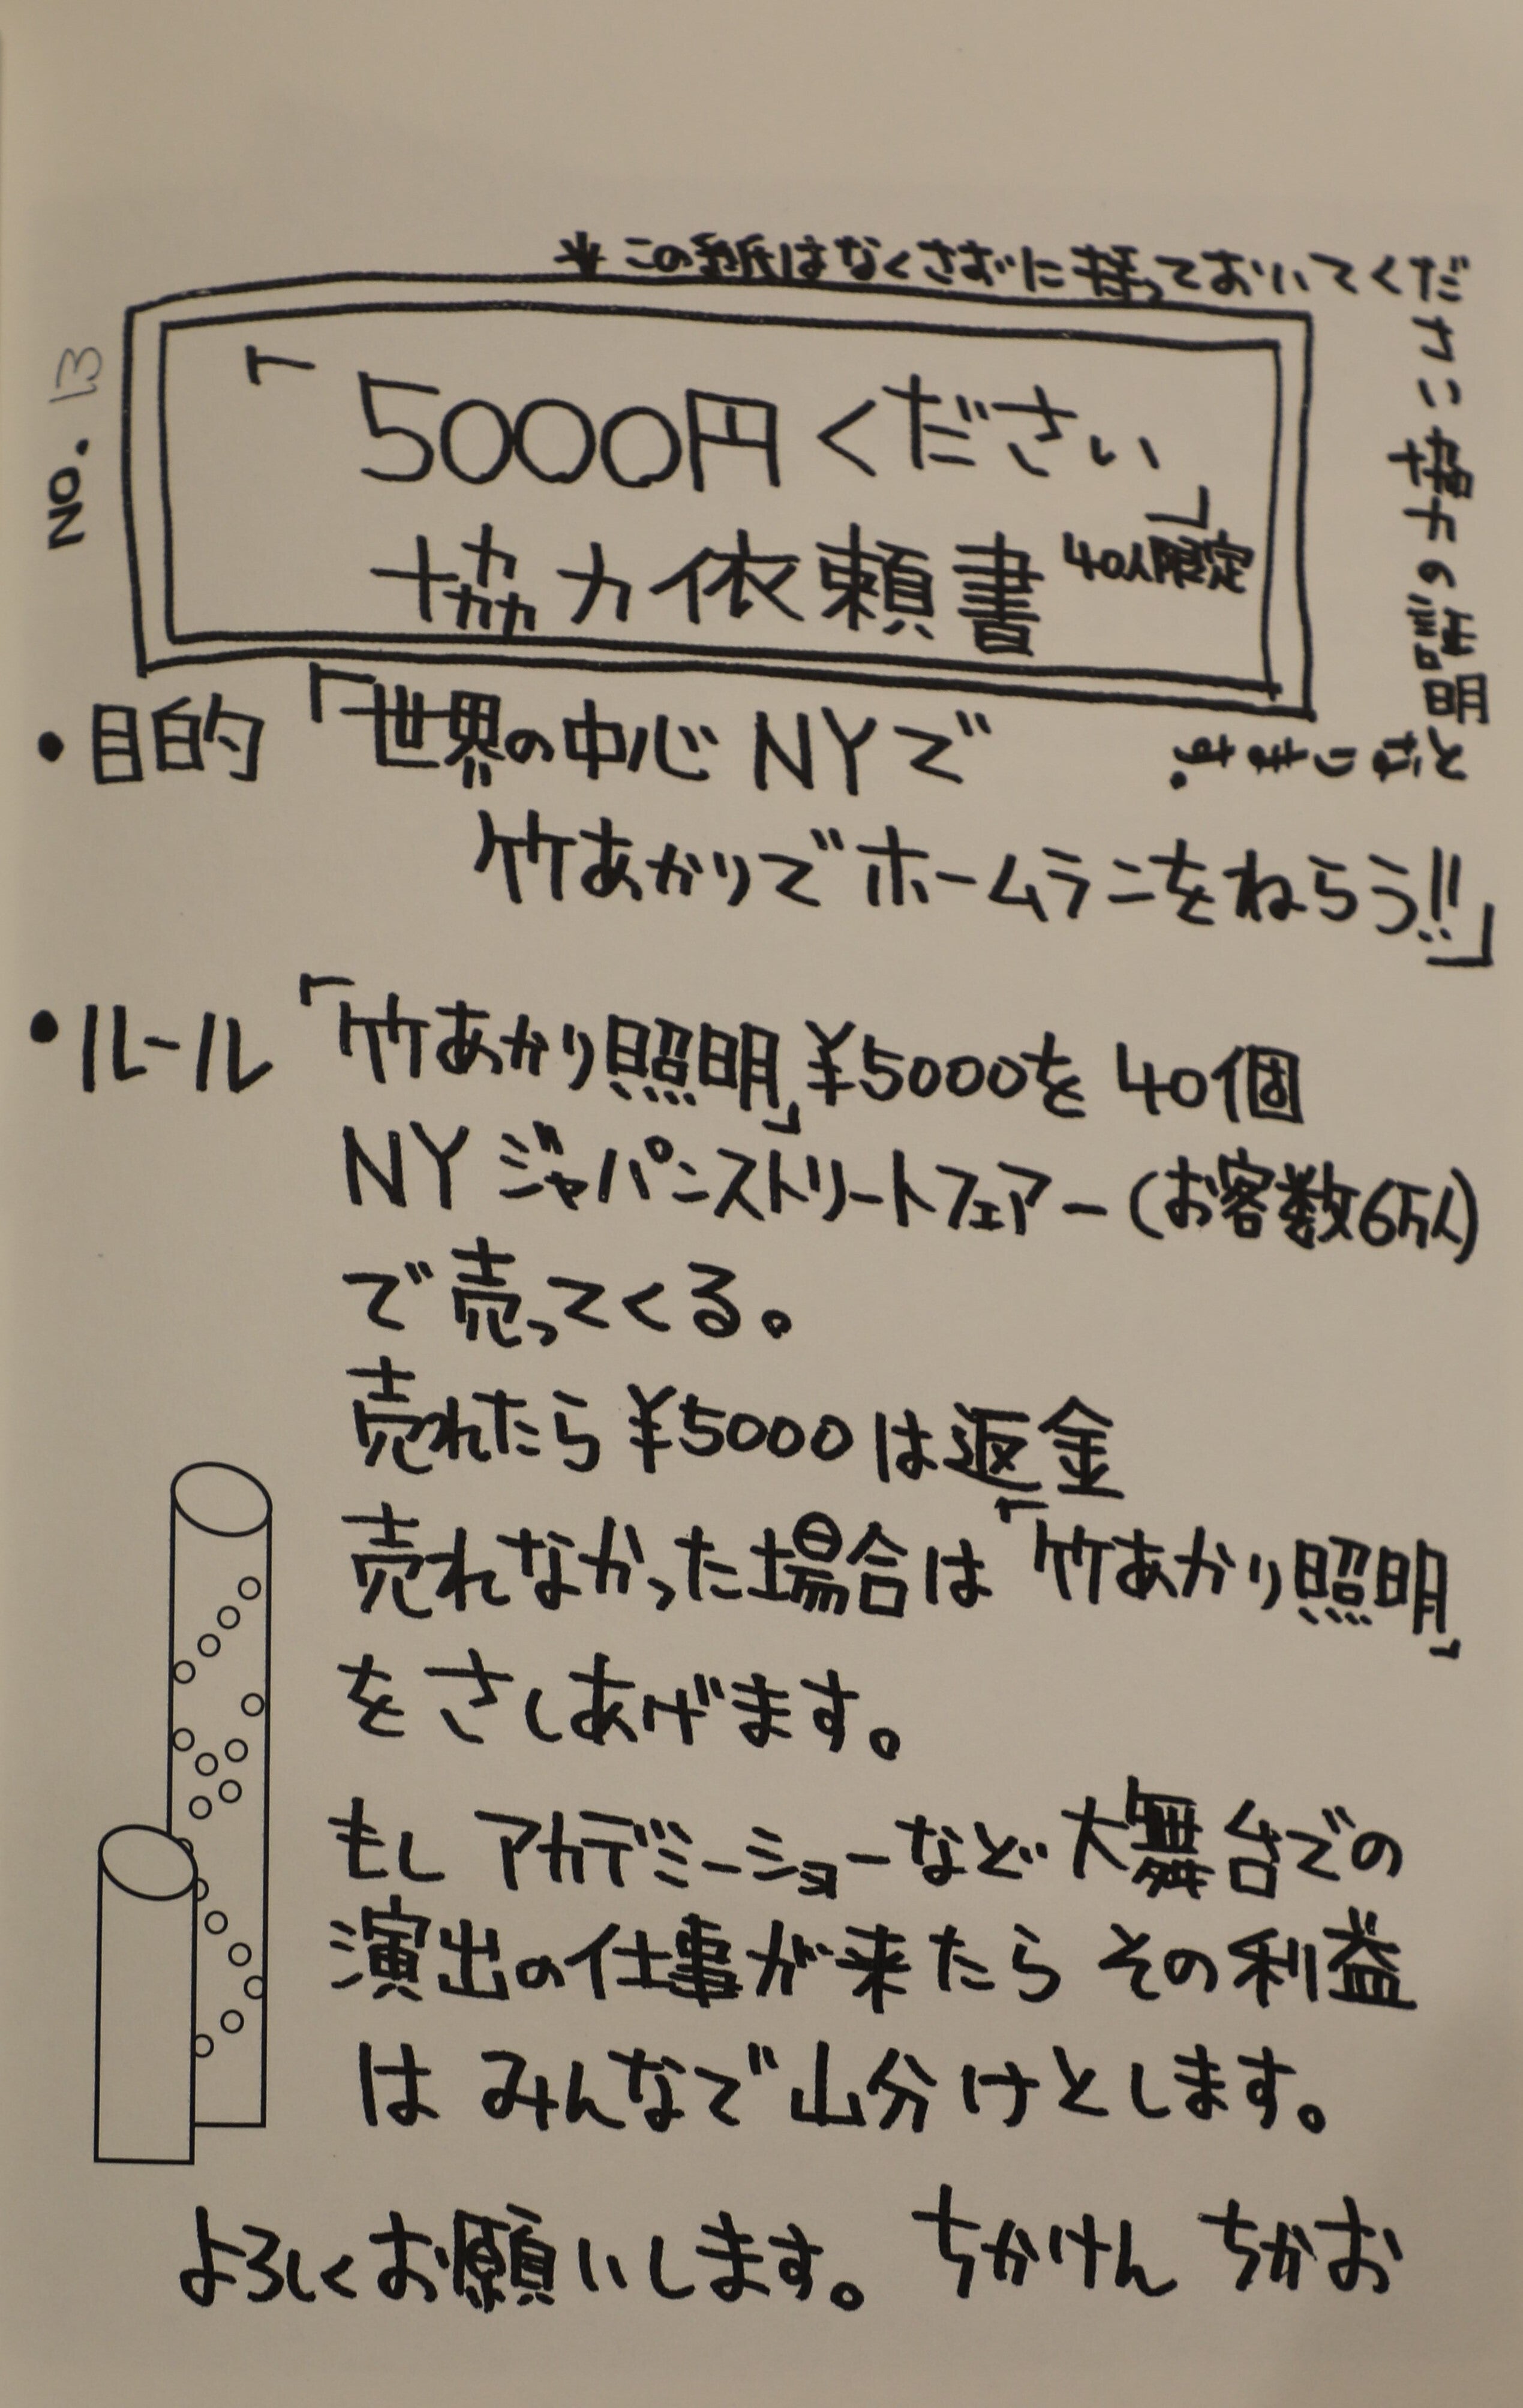 *この紙はなくさずに持っておいてくだ
さい協力の証明
となります。
NO. 13
「5000円ください」
協力依頼書 40人限定
・目的 「世界の中心NYで
竹あかりでホームランをねらう!!」
・ルール 「竹あかり照明」¥5000を40個
NYジャパンストリートフェアー(お客数6万人)
で売ってくる。
売れたら¥5000は返金
売れなかった場合は「竹あかり照明」
をさしあげます。
もしアカデミーショーなど大舞台での
演出の仕事が来たらその利益
はみんなで山分けとします。
よろしくお願いします。ちかけん ちかお